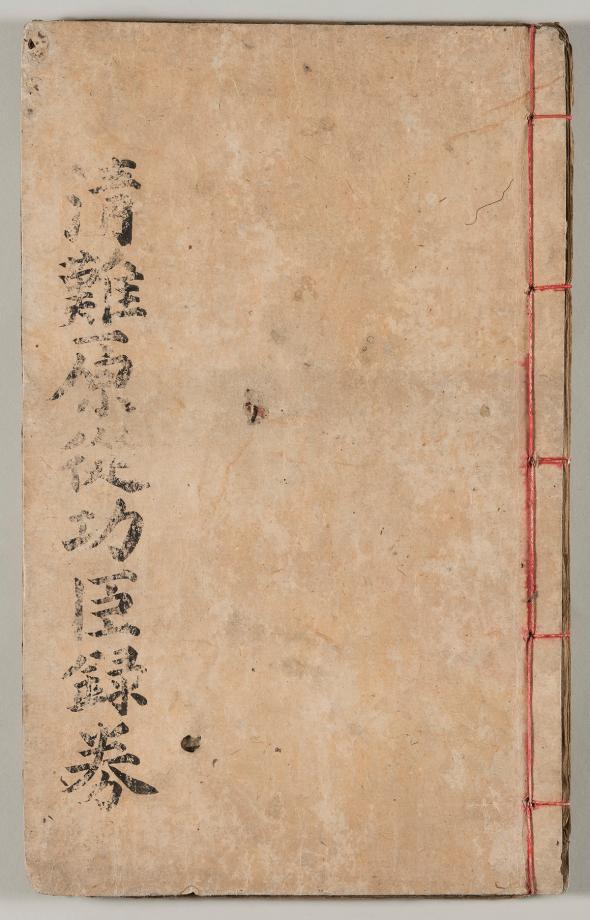 清難原從功臣錄券